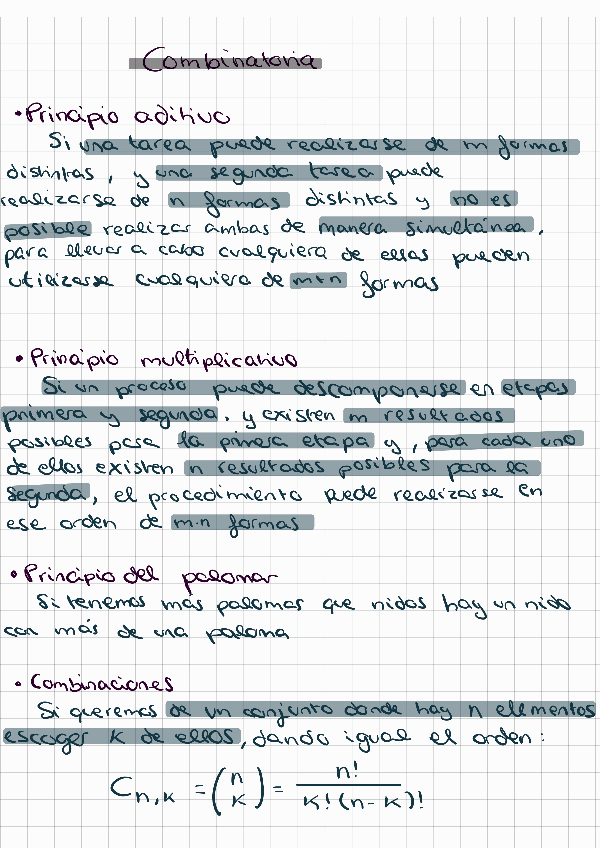 Combinatoria
• Principio aditivo
Si una tarea puede realizarse de m formas
distintas, y una segunda tarea puede
realizarse de n formas distintas y no es
posible realizar ambas de manera simultánea,
para llevar a cabo cualquiera de ellas pueden
utilizarse cualquiera de m+n formas
• Principio multiplicativo
Si un proceso puede descomponerse en etapas
primera y segunda, y existen m resultados
posibles para la primera etapa y, para cada uno
de ellos existen n resultados posibles para la
segunda, el procedimiento puede realizarse en
ese orden de m·n formas
• Principio del palomar
Si tenemos más palomas que nidos hay un nido
con más de una paloma
• Combinaciones
Si queremos de un conjunto donde hay n ellementos
escoger k de ellos, dando igual el orden:
C_{n,k} = \binom{n}{k} = \frac{n!}{k!(n-k)!}